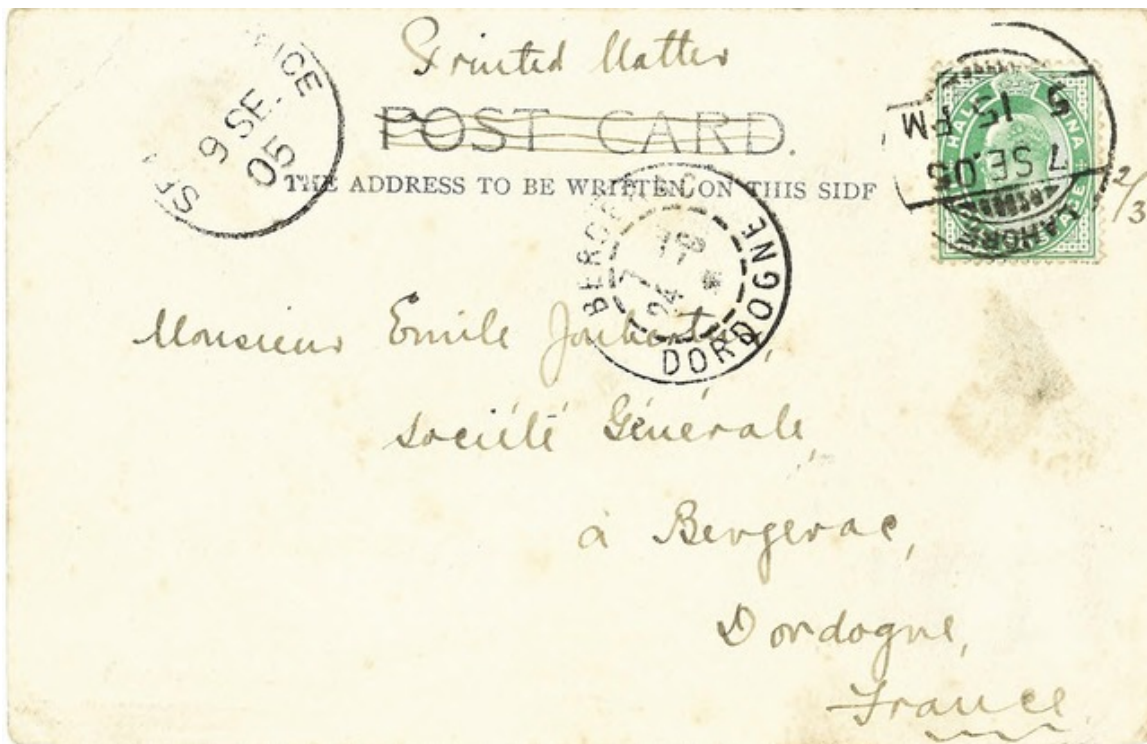 Printed Matter
POST CARD.
THE ADDRESS TO BE WRITTEN ON THIS SIDE
9 SE.
05
LAHORE
7 SE.05
5 15 PM
HALF ANNA
2/3
BERGERAC
DORDOGNE
Monsieur Emile
Société Générale,
à Bergerac,
Dordogne,
France